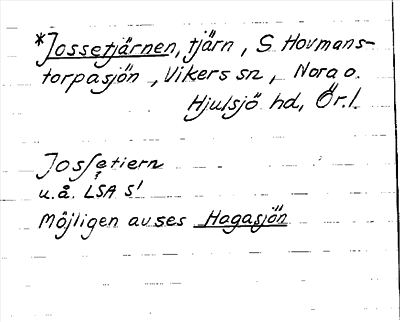 *Jossetjärnen, tjärn, S Hovmans-
torpasjön, Vikers sn, Nora o.
Hjulsjö hd, Ör.l.
Jossetiern
?
u.å. LSA S1
Möjligen avses Hagasjön